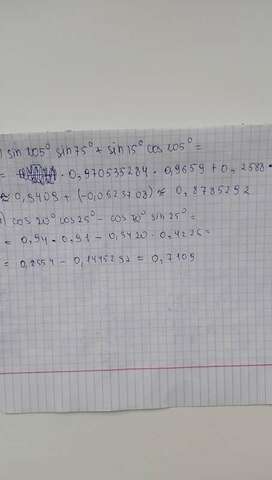 ) sin 205° sin 75° + sin 15° cos 205° =
= · 0,970535284 · 0,9659 + 0,2588 ·
≈ 0,9409 + (-0,0623708) ≈ 0,8785292
) cos 20° cos 25° - cos 70° sin 25° =
= 0,94 · 0,91 - 0,3420 · 0,4226 =
= 0,8554 - 0,1445292 = 0,7109